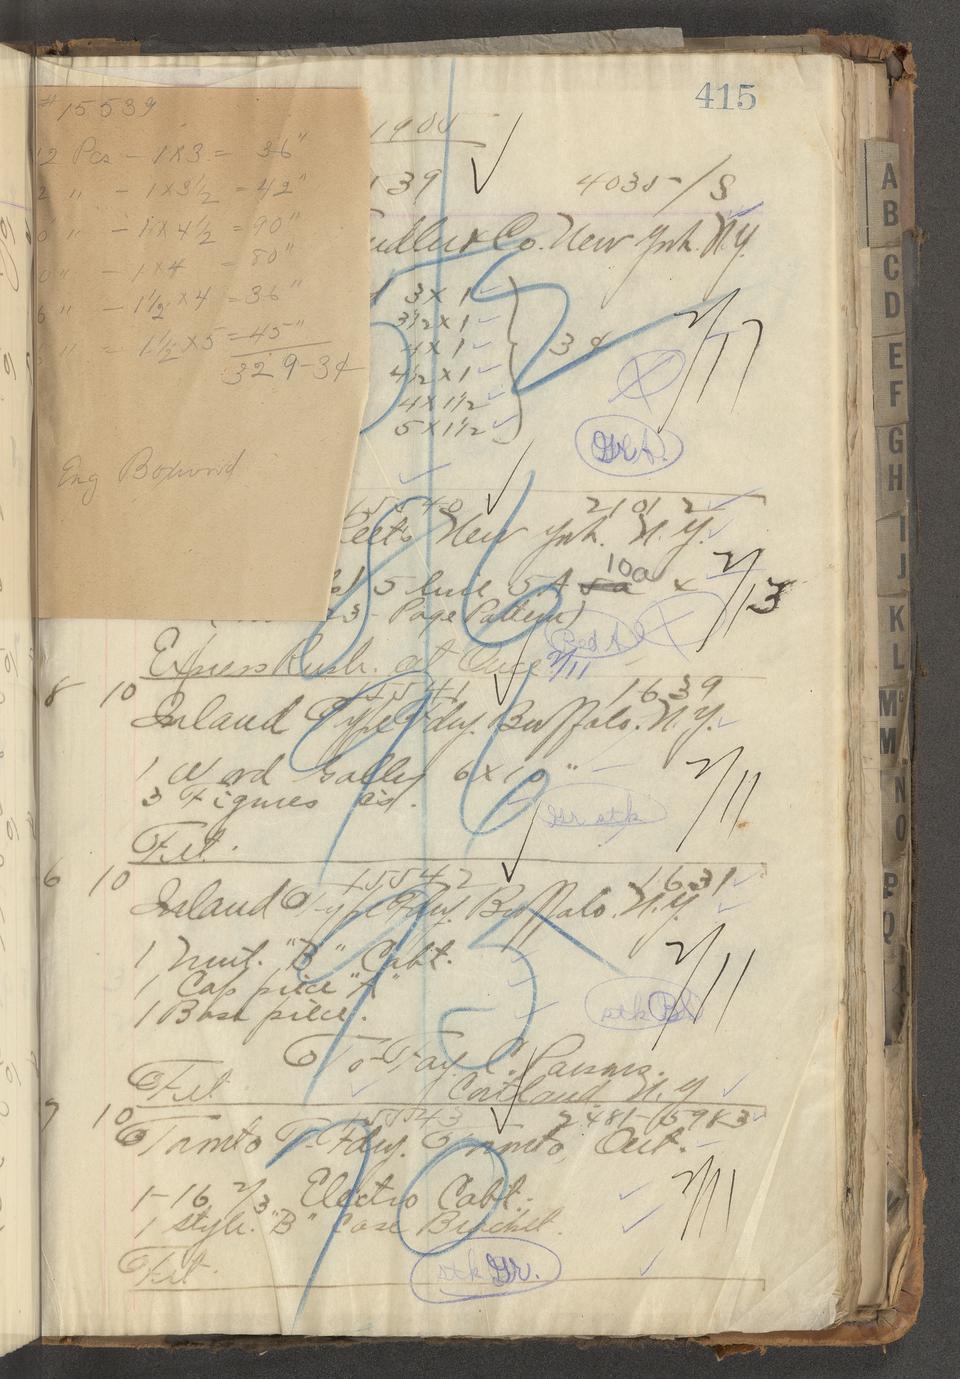 415
# 15539
2 Pcs - 1x3 = 36"
2 " - 1x3½ = 42"
0 " - 1x4½ = 90"
0 " - 1x4 = 80"
6 " - 1½x4 = 36"
" = 1½x5 = 45"
329-3¢
Eng Boxwood
1900
39 4035-/S
& Co. New York. N.Y.
3x1
3½x1
4x1
4½x1
4x1½
5x1½
3¢
2/17
Gr A.
15540 21012
New York. N.Y.
5 line 5A 5a 10a
2/13
3-Page Pattern)
Red A
Express Rush. at Once
2/11
15541 1639
8 10 Inland Type Fdry. Buffalo. N.Y.
1 Word Gally 6x10"
3 Figures
2/11
Gr stk
Frt.
15542 1631
6 10 Inland Type Fdry. Buffalo. N.Y.
1 "B" Cabt.
1 Cap piece "A"
1 Base piece.
2/11
stk Bs
To-Fay C. Parsons.
Frt Cortland N.Y
15543 2481-5983
7 10 Toronto T. Fdry. Toronto, Ont.
1-16 2/3 Electro Cabt.
1 style. "B" Case Bracket.
2/11
Frt.
stk Gr.
95
70
A
B
C
D
E
F
G
H
I
J
K
L
Mc
M
N
O
P
Q